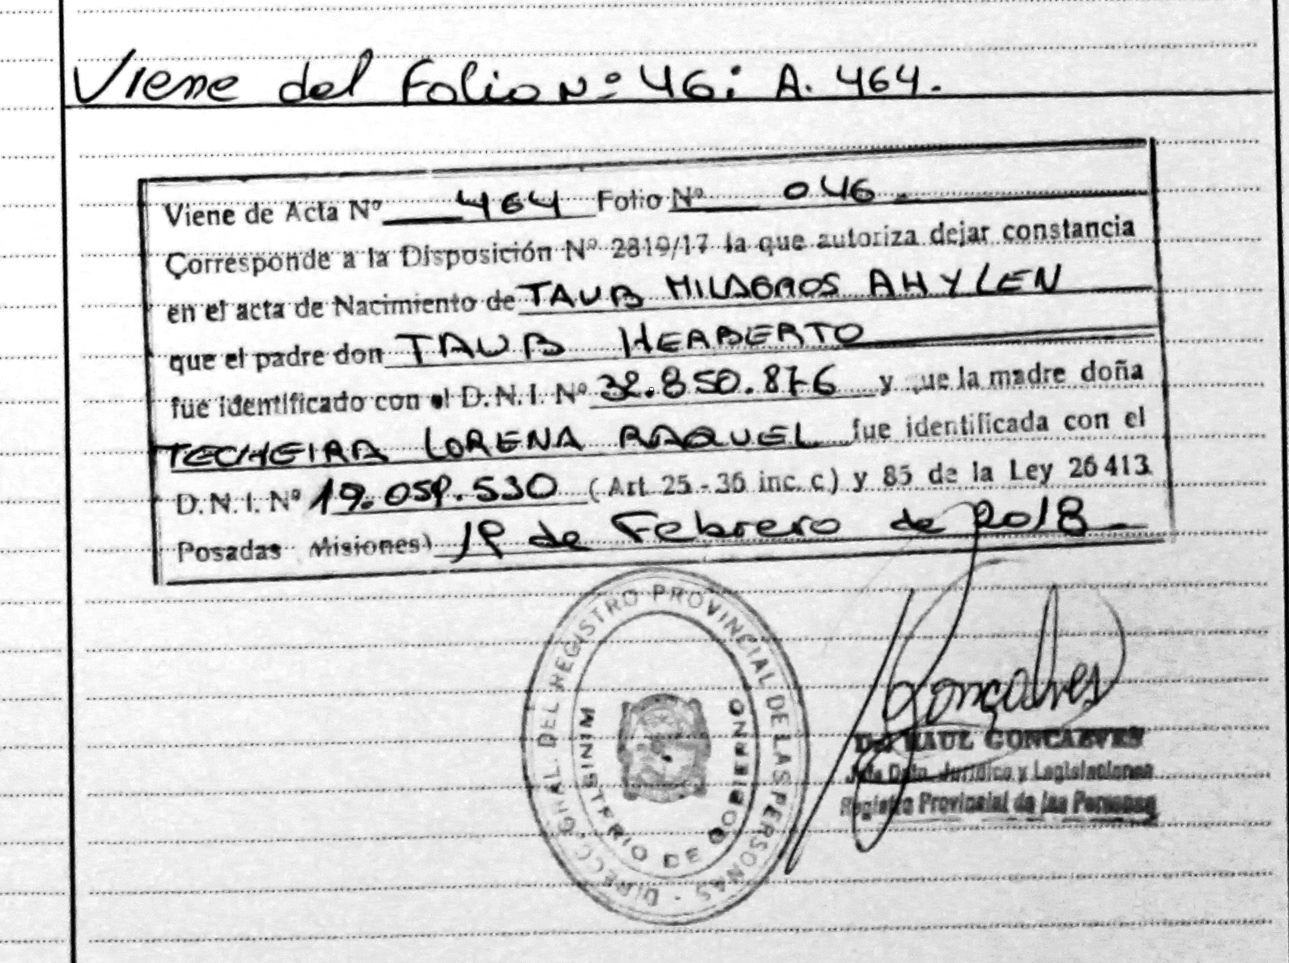 Viene del Folio Nº 46; A. 464.
Viene de Acta Nº 464 Folio Nº 046.
Corresponde a la Disposición Nº 2819/17 la que autoriza dejar constancia
en el acta de Nacimiento de TAUB MILAGROS AHYLEN
que el padre don TAUB HERBERTO
fue identificado con el D.N.I. Nº 32.850.876 y que la madre doña
TECHEIRA LORENA RAQUEL fue identificada con el
D.N.I. Nº 19.059.530 (Art. 25 - 36 inc. c) y 85 de la Ley 26413
Posadas Misiones) 19 de Febrero de 2018.
DIRECC. GRAL. DEL REGISTRO PROVINCIAL DE LAS PERSONAS
MINISTERIO DE GOBIERNO
Gonçalves
RAUL GONCALVES
Jefe Dpto. Jurídico y Legislaciones
Registro Provincial de las Personas